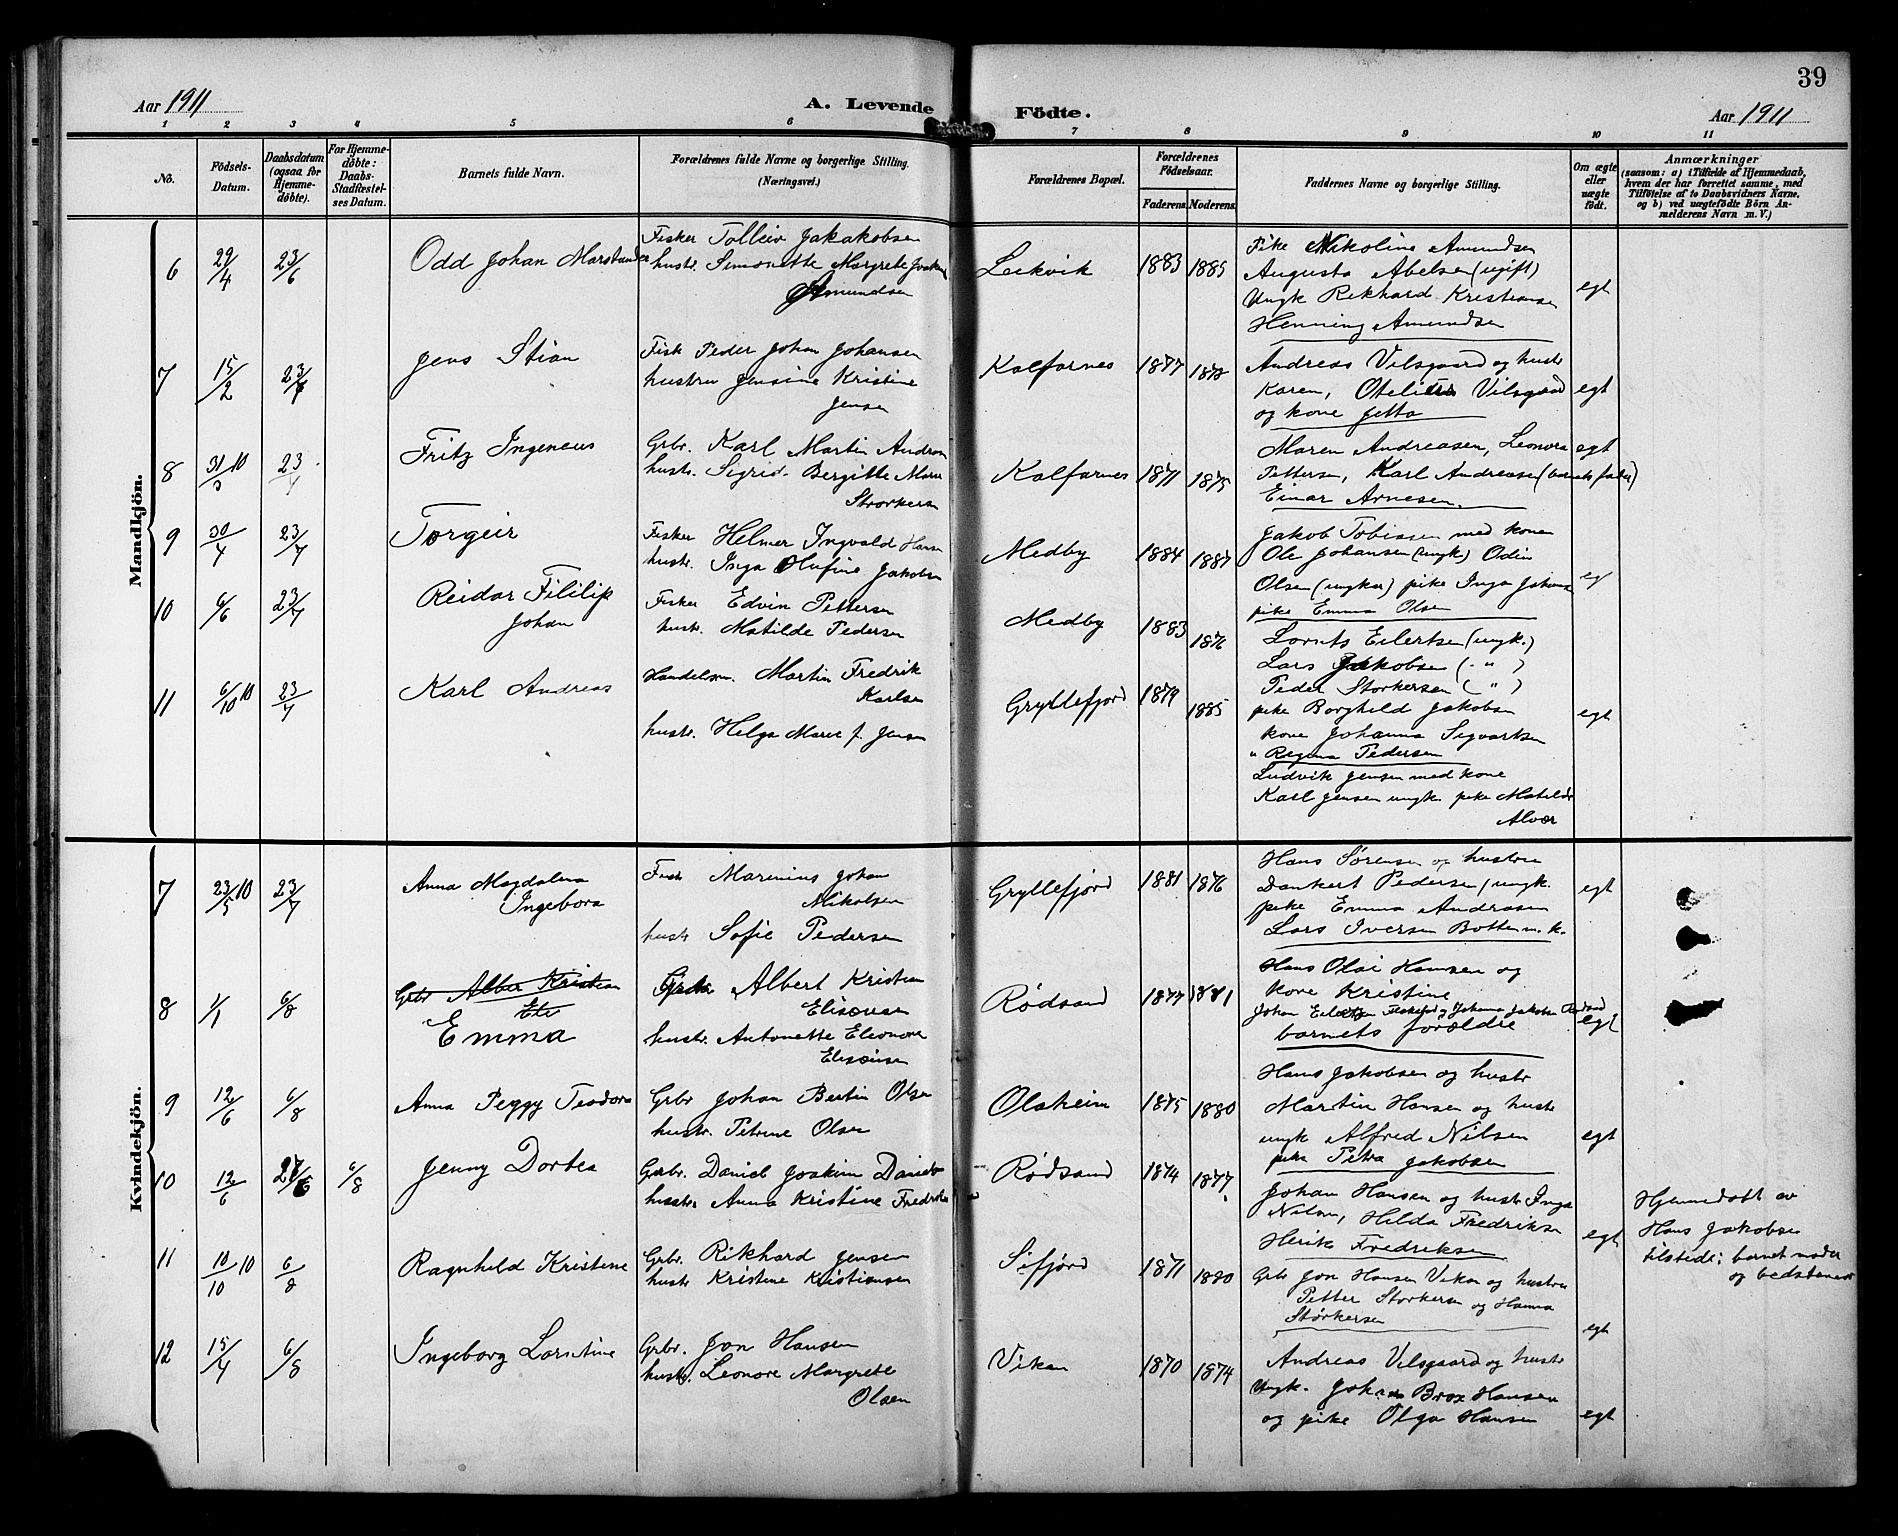 39
Aar 1911
A. Levende Födte.
Aar 1911
1 2 3 4 5 6 7 8 9 10 11
Nö.
Födsels-Datum.
Daabsdatum (ogsaa for Hjemme-döbte).
For Hjemme-döbte: Daabs-Stadfæstel-ses Datum.
Barnets fulde Navn.
Forældrenes fulde Navne og borgerlige Stilling. (Næringsvei.)
Forældrenes Bopæl.
Forældrenes Födselsaar.
Faderens. Moderens.
Faddernes Navne og borgerlige Stilling.
Om ægte eller uægte födt.
Anmærkninger
(saasom: a) i Tilfælde af Hjemmedaab, hvem der har forrettet samme, med Tilföielse af to Daabsvidners Navne, og b) ved uægtefödte Börn An-melderens Navn m. V.)
Mandkjön.
6 29/4 23/6 Odd Johan Marstander
Fisker Tolleiv Jakakobsen
hustr. Simonette Margrete Joakim
Amundsen
Leikvik 1883 1885
Pike Nikoline Amundsen
Augusta Abelsen (ugift)
Ungk Rikhard Kristiansen
Henning Amundsen
egt
7 15/2 23/7 Jens Stian
Fisk Peder Johan Johansen
hustru Jensine Kristine
Jensen
Kalfarnes 1877 1872
Andreas Vilsgaard og hustr
Karen, Vilsgaard
og kone Jetta
egt
8 31/3 10 23/7 Fritz Ingeneus
Grbr. Karl Martin Andreasen
hustr. Sigrid Bergitte Maren
Storkersen
Kalfarnes 1871 1875
Maren Andreasen, Leonora
Pettersen, Karl Andreasen (barnets fader)
Einar Arnesen.
egt
9 30/4 23/7 Torgeir
Fisker Helmer Ingvald Hansen
hustr. Inga Olufine Jakobsen
Medby 1884 1887
Jakob Tobiasen med kone
Ole Johansen (ungk) Odin
Olsen (ungkar) pike Inga Johansen
pike Emma Olsen
egt
10 6/6 23/7 Reidar Fililip
Johan
Fisker Edvin Pettersen
hustr. Matilde Pedersen
Medby 1883 1876
Lornts Eilertsen (ungk.)
Lars Jakobsen (- " )
Peder Storkersen ( " )
pike Borghild Jakobsen
kone Johanna Sigvartsen
" Regina Pedersen
11 6/10 10 23/7 Karl Andreas
Handelsm. Martin Fredrik
Karlsen
hustr. Helga Marie f. Jensen
Gryllefjord 1879 1885
egt
Ludvik Jensen med kone
Karl Jensen ungk. pike Matilde
Alvær
Kvindekjön.
7 23/5 10 23/7 Anna Magdalena
Ingeborg
Fisk Marenius Johan
Mikalsen
hustr Sofie Pedersen
Gryllefjord 1881 1876
Hans Sørensen og hustru
Dankert Pedersen (ungk.
pike Emma Andreasen
Lars Iversen Botten m. k.
egt
8 1/1 6/8 Grbr Alber Kristian
Elr
Emma
Albert Kristian
Eliseussen
hustr. Antonette Eleonora
Eliseusen
Rødsand 1877 1881
Hans Olai Hansen og
kone Kristine
Johan
barnets forældre
egt
9 12/6 6/8 Anna Peggy Teodora
Grbr Johan Bertin Olsen
hustr. Petrine Olsen
Olaheim 1875 1880
Hans Jakobsen og hustr
Martin Hansen og hustr
ungk Alfred Nilsen
pike Petra Jakobsen
egt
10 12/6 27/6 6/8 Jenny Dortea
Grbr. Daniel Joakim Daniels
hustru Anna Kristine Fredriksen
Rødsand 1874 1877
Johan Hansen og hustr Inga
Nilsen, Hilda Fredriksen
Henrik Fredriksen
egt
Hjemmedøbt av
Hans Jakobsen
tilstede: barnet moder
og bedstemor
11 10/10 10 6/8 Ragnhild Kristine
Grbr. Rikhard Jensen
hustr Kristine Kristiansen
Sifjord 1871 1880
Grbr Jon Hansen Vikan og hustru
Petter Storkersen og Hanna
Størkersen
egt
12 15/4 6/8 Ingeborg Lorntine
Grbr. Jon Hansen
hustr. Leonore Margrete
Olsen
Vikan 1870 1874
Andreas Vilsgaard og hustr
Ungk. Johan Brox Hansen
og pike Olga Hansen
egt